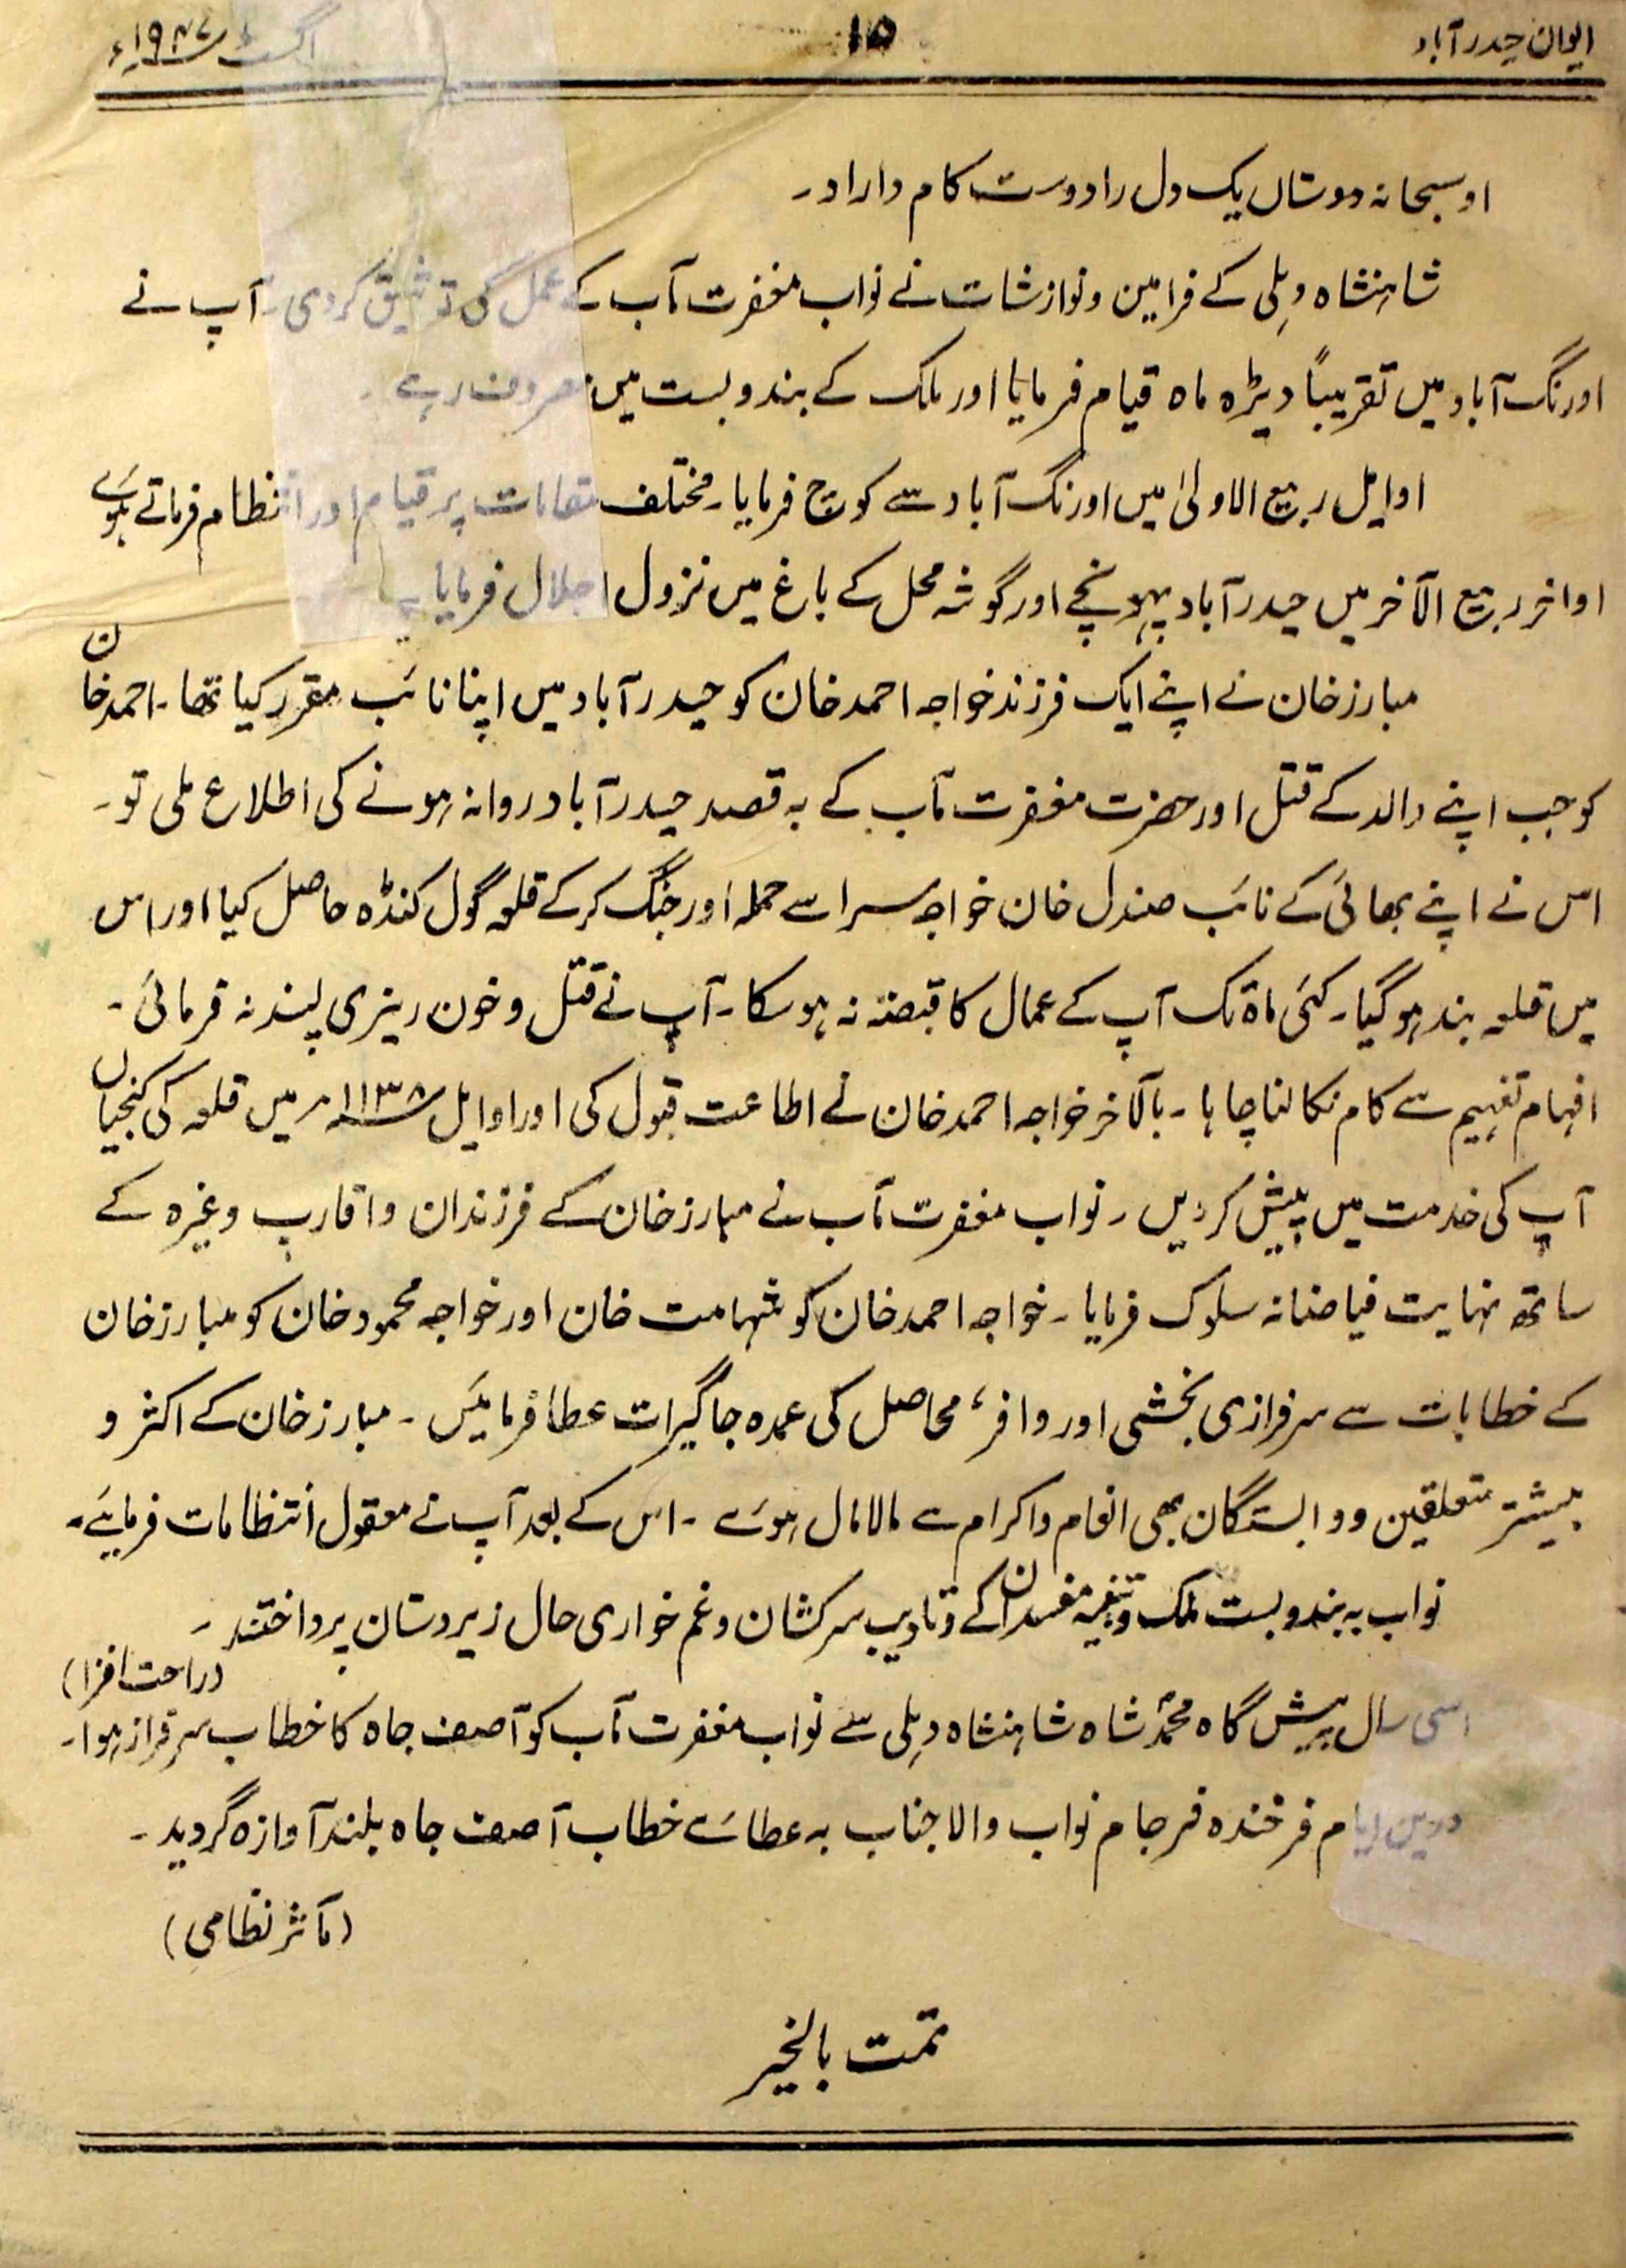 ایوان حیدرآباد ۱۵ اگست ۱۹۴۷ء
او سبحانہ دوستاں یک دل را دوست کام داراد۔
شاہنشاہ دہلی کے فرامین و نوازشات نے نواب مغفرت مآب کے عمل کی توثیق کردی۔ آپ نے
اورنگ آباد میں تقریباً دیڑہ ماہ قیام فرمایا اور ملک کے بندوبست میں مصروف رہے۔
اوایل ربیع الاولیٰ میں اورنگ آباد سے کوچ فرمایا۔ مختلف مقامات پر قیام اور انتظام فرماتے ہوئے
اواخر ربیع الآخر میں حیدرآباد پہونچے اور گوشہ محل کے باغ میں نزول اجلال فرمایا۔
مبارز خان نے اپنے ایک فرزند خواجہ احمد خان کو حیدرآباد میں اپنا نائب مقرر کیا تھا۔ احمد خان
کو جب اپنے والد کے قتل اور حضرت مغفرت مآب کے بہ قصد حیدرآباد روانہ ہونے کی اطلاع ملی تو۔
اس نے اپنے بھائی کے نائب صندل خان خواجہ سرا سے حملہ اور جنگ کرکے قلعہ گول کنڈہ حاصل کیا اور اس
میں قلعہ بند ہوگیا۔ کئی ماہ تک آپ کے عمال کا قبضہ نہ ہوسکا۔ آپ نے قتل و خون ریزی پسند نہ فرمائی۔
افہام تفہیم سے کام نکالنا چاہا۔ بالآخر خواجہ احمد خان نے اطاعت قبول کی اور اوایل ۱۱۳۸ھ میں قلعہ کی کنجیاں
آپ کی خدمت میں پیش کردیں۔ نواب مغفرت مآب نے مبارز خان کے فرزندان و اقارب وغیرہ کے
ساتھ نہایت فیاضانہ سلوک فرمایا۔ خواجہ احمد خان کو شہامت خان اور خواجہ محمود خان کو مبارز خان
کے خطابات سے سرفرازی بخشی اور وافر، محاصل کی عمدہ جاگیرات عطا فرمائیں۔ مبارز خان کے اکثر و
بیشتر متعلقین و وابستگان بھی انعام و اکرام سے مالامال ہوے۔ اس کے بعد آپ نے معقول انتظامات فرمائیے۔
نواب بہ بندوبست ملک و تنبیہ مفسدان کے و تادیب سرکشان و غم خواری حال زیردستان پرداختند۔
(راحت افزا)
اسی سال پیش گاہ محمدؐ شاہ شاہنشاہ دہلی سے نواب مغفرت مآب کو آصف جاہ کا خطاب سرفراز ہوا۔
دریں ایام فرخندہ فرجام نواب والا جناب بہ عطائے خطاب آصف جاہ بلند آوازہ گردید۔
(مآثر نظامی)
تمت بالخیر